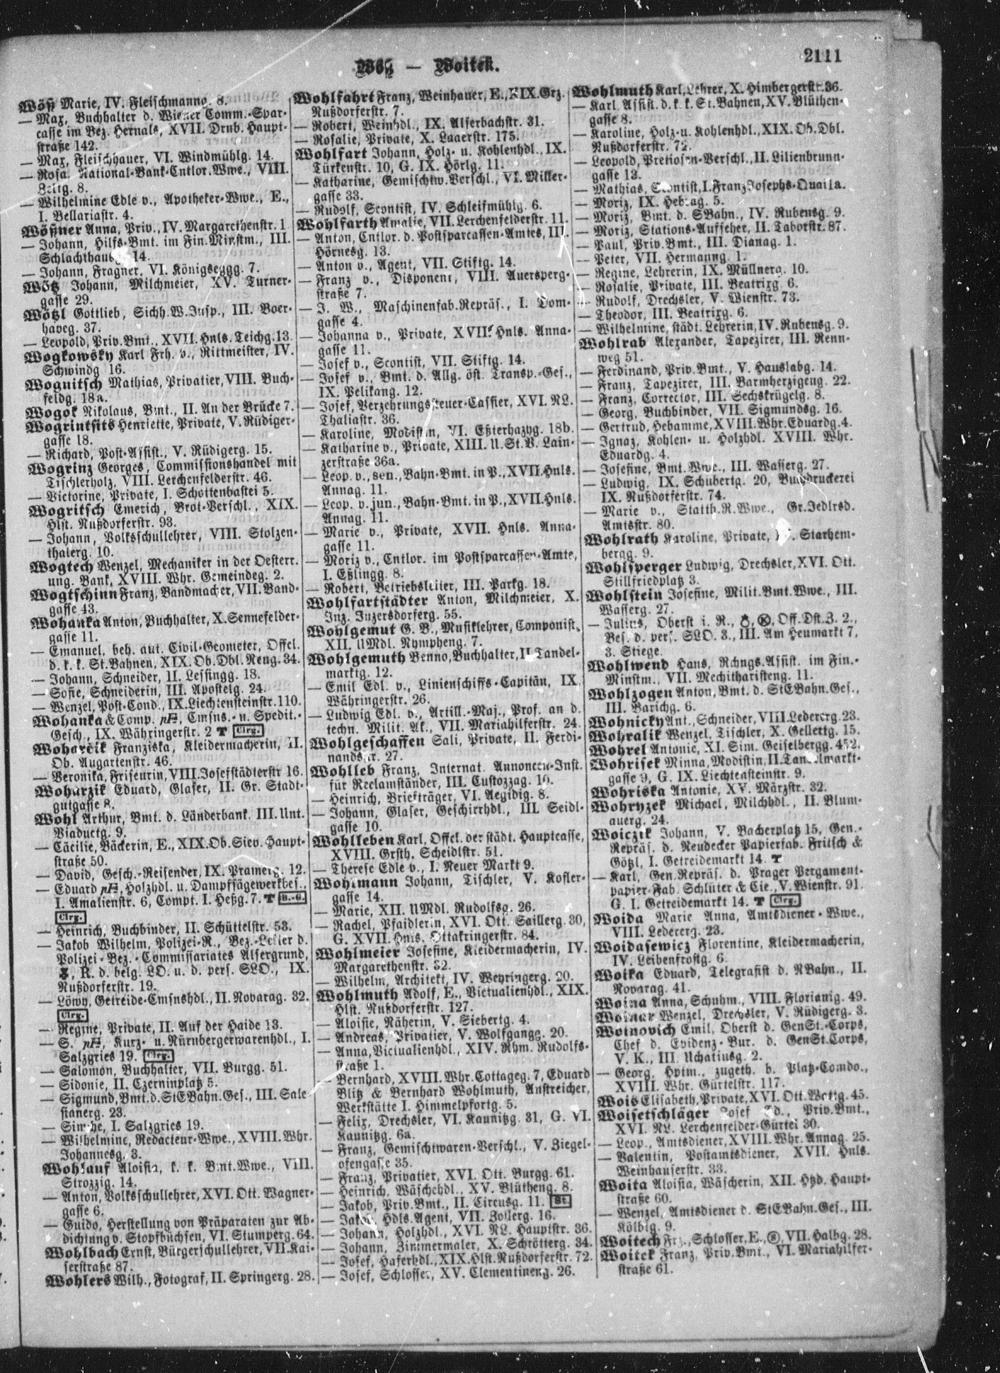 2111
Wöß — Woitek.
Wöß Marie, IV. Fleischmanng. 8.
— Max, Buchhalter d. Wiener Comm.-Spar-
casse im Bez. Hernals, XVII. Drnb. Haupt-
straße 142.
— Max, Fleischhauer, VI. Windmühlg. 14.
— Rosa, National-Bank-Cntlor.Wwe., VIII.
Zeltg. 8.
— Wilhelmine Edle v., Apotheker-Wwe., E.,
I. Bellariastr. 4.
Wößner Anna, Priv., IV. Margarethenstr. 1
— Johann, Hilfs-Bmt. im Fin.Minstm., III.
Schlachthausg. 14.
— Johann, Fragner, VI. Königsegg. 7.
Wötz Johann, Milchmeier, XV. Turner-
gasse 29.
Wötzl Gottlieb, Sichh.W.Insp., III. Boer-
haveg. 37.
— Leopold, Priv.Bmt., XVII. Hnls. Teichg. 13.
Wogkowsky Karl Frh. v., Rittmeister, IV.
Schwindg 16.
Wognitsch Mathias, Privatier, VIII. Buch-
feldg. 18a.
Wogok Nikolaus, Bmt., II. An der Brücke 7.
Wogrintsits Henriette, Private, V. Rüdiger-
gasse 18.
— Richard, Post-Assist., V. Rüdigerg. 15.
Wogrinz Georges, Commissionshandel mit
Tischlerholz, VIII. Lerchenfelderstr. 46.
— Victorine, Private, I. Schottenbastei 5.
Wogritsch Emerich, Brot-Verschl., XIX.
Hlst. Nußdorferstr. 93.
— Johann, Volksschullehrer, VIII. Stolzen-
thalerg. 10.
Wogtech Wenzel, Mechaniker in der Oesterr.
ung. Bank, XVIII. Whr. Gemeindeg. 2.
Wogtschinn Franz, Bandmacher, VII. Band-
gasse 43.
Wohanka Anton, Buchhalter, X. Sennefelder-
gasse 11.
— Emanuel, beh. aut. Civil-Geometer, Offcl.
d. k. k. St.Bahnen, XIX. Ob. Dbl. Reng. 34.
— Johann, Schneider, II. Lessingg. 18.
— Sofie, Schneiderin, III. Apostelg. 24.
— Wenzel, Post-Cond., IX. Liechtensteinstr. 110.
Wohanka & Comp. pH, Cmsns.- u. Spedit.-
Gesch., IX. Währingerstr. 2 T Clrg.
Woharcik Franziska, Kleidermacherin, II.
Ob. Augartenstr. 46.
— Veronika, Friseurin, VIII. Josefstädterstr 16.
Woharzik Eduard, Glaser, II. Gr. Stadt-
gutgasse 8.
Wohl Arthur, Bmt. d. Länderbank. III. Unt.
Viaductg. 9.
— Cäcilie, Bäckerin, E., XIX. Ob. Siev. Haupt-
straße 50.
— David, Gesch.-Reisender, IX. Pramerg. 12.
— Eduard pH, Holzhdl. u. Dampfsägewerkbes.,
I. Amalienstr. 6, Compt. I. Heßg. 7. T B.-G.
Clrg.
— Heinrich, Buchbinder, II. Schüttelstr. 53.
— Jakob Wilhelm, Polizei-R., Bez.-Leiter d.
Polizei-Bez.-Commissariates Alsergrund,
R. d. belg. LO. u. d. pers. SLO., IX.
Nußdorferstr. 19.
— Löwy, Getreide-Cmsnshdl., II. Novarag. 32.
Clrg.
— Regine, Private, II. Auf der Haide 13.
— S. pH, Kurz- u. Nürnbergerwarenhdl., I.
Salzgries 19. Clrg.
— Salomon, Buchhalter, VII. Burgg. 51.
— Sidonie, II. Czerninplatz 5.
— Sigmund, Bmt. d. StEBahn.Ges., III. Sale
sianerg. 23.
— Simche, I. Salzgries 19.
— Wilhelmine, Redacteur-Wwe., XVIII. Whr.
Johannesg. 3.
Wohlauf Aloisia, k. k. Bmt.Wwe., VIII.
Strozzig. 14.
— Anton, Volksschullehrer, XVI. Ott. Wagner-
gasse 6.
— Guido, Herstellung von Präparaten zur Ab-
dichtung v. Stopfbüchsen, VI. Stumperg. 64.
Wohlbach Ernst, Bürgerschullehrer, VII. Kai-
serstraße 87.
Wohlers Wilh., Fotograf, II. Springerg. 28.
Wohlfahrt Franz, Weinhauer, E., XIX. Grz.
Nußdorferstr. 7.
— Robert, Weinhdl., IX. Alserbachstr. 31.
— Rosalie, Private, X. Laaerstr. 175.
Wohlfart Johann, Holz- u. Kohlenhdl., IX.
Türkenstr. 10, G. IX. Hörlg. 11.
— Katharine, Gemischtw.Verschl., VI. Miller-
gasse 33.
— Rudolf, Scontist, IV. Schleifmühlg. 6.
Wohlfarth Amalie, VII. Lerchenfelderstr. 11.
— Anton, Cntlor. d. Postsparcassen-Amtes, III.
Hörnesg. 13.
— Anton v., Agent, VII. Stiftg. 14.
— Franz v., Disponent, VIII. Auersperg-
straße 7.
— J. W., Maschinenfab.Repräs., I. Dom-
gasse 4.
— Johanna v., Private, XVII. Hnls. Anna-
gasse 11.
— Josef v., Scontist, VII. Stiftg. 14.
— Josef v., Bmt. d. Allg. öst. Transp.-Ges.,
IX. Pelikang. 12.
— Josef, Verzehrungssteuer-Cassier, XVI. NL.
Thaliastr. 36.
— Karoline, Modistin, VI. Eßterhazyg. 18b.
— Katharine v., Private, XIII. U. St. V. Lain-
zerstraße 36a.
— Leop. v., sen., Bahn-Bmt. in P., XVII. Hnls.
Annag. 11.
— Leop. v. jun., Bahn-Bmt. in P., XVII. Hnls.
Annag. 11.
— Marie v., Private, XVII. Hnls. Anna-
gasse 11.
— Moriz v., Cntlor. im Postsparcassen-Amte,
I. Eßlingg. 8.
— Robert, Betriebsleiter, III. Parkg. 18.
Wohlfartstädter Anton, Milchmeier, X.
Inz. Inzersdorferg. 55.
Wohlgemut G. B., Musiklehrer, Componist,
XII. UMdl. Nympheng. 7.
Wohlgemuth Benno, Buchhalter, II. Tandel-
marktg. 12.
— Emil Edl. v., Linienschiffs-Capitän, IX.
Währingerstr. 26.
— Ludwig Edl. v., Artill.-Maj., Prof. an d.
techn. Milit. Ak., VII. Mariahilferstr. 24.
Wohlgeschaffen Sali, Private, II. Ferdi-
nandsstr. 27.
Wohlleb Franz, Internat. Annoncen-Inst.
für Reclamständer, III. Custozzag. 10.
— Heinrich, Briefträger, VI. Aegidig. 8.
— Johann, Glaser, Geschirrhdl., III. Seidl-
gasse 10.
Wohlleben Karl, Offcl. der städt. Hauptcasse,
XVIII. Grsth. Scheidlstr. 51.
— Therese Edle v., I. Neuer Markt 9.
Wohlmann Johann, Tischler, V. Kofler-
gasse 14.
— Marie, XII. UMdl. Rudolfsg. 26.
— Rachel, Pfaidlerin, XVI. Ott. Saillerg. 30,
G. XVII. Hnls. Ottakringerstr. 84.
Wohlmeier Josefine, Kleidermacherin, IV.
Margarethenstr. 32.
— Wilhelm, Architekt, IV. Weyringerg. 20.
Wohlmuth Adolf, E., Victualienhdl., XIX.
Hlst. Nußdorferstr. 127.
— Aloisie, Näherin, V. Siebertg. 4.
— Andreas, Privatier, V. Wolfgangg. 20.
— Anna, Victualienhdl., XIV. Rhm. Rudolfs-
straße 1.
— Bernhard, XVIII. Whr. Cottageg. 7, Eduard
Blitz & Bernhard Wohlmuth, Anstreicher,
Werkstätte I. Himmelpfortg. 5.
— Felix, Drechsler, VI. Kaunitzg. 31, G. VI.
Kaunitzg. 6a.
— Franz, Gemischtwaren-Verschl., V. Ziegel-
ofengasse 35.
— Franz, Privatier, XVI. Ott. Burgg. 61.
— Heinrich, Wäschehdl., XV. Blütheng. 8.
— Jakob, Priv.Bmt., II. Circusg. 11. St.
— Jakob, Hdls.Agent, VII. Zollerg. 16.
— Johann, Holzhdl., XVI. NL. Hauptstr. 36.
— Johann, Zimmermaler, X. Schrötterg. 34.
— Josef, Haferhdl., XIX. Hlst. Nußdorferstr. 72.
— Josef, Schlosser, XV. Clementineng. 26.
Wohlmuth Karl, Lehrer, X. Himbergerstr. 36.
— Karl, Assist. d. k. k. St. Bahnen, XV. Blüthen-
gasse 8.
— Karoline, Holz- u. Kohlenhdl., XIX. Ob. Dbl.
Nußdorferstr. 72.
— Leopold, Pretiosen-Verschl., II. Lilienbrunn-
gasse 13.
— Mathias, Scontist, I. Franz Josephs-Quai 1a.
— Moriz, IX. Hebrag. 5.
— Moriz, Bmt. d. SBahn., IV. Rubensg. 9.
— Moriz, Stations-Aufseher, II. Taborstr. 87.
— Paul, Priv.Bmt., III. Dianag. 1.
— Peter, VII. Hermanng. 1.
— Regine, Lehrerin, IX. Müllnerg. 10.
— Rosalie, Private, III. Beatrixg. 6.
— Rudolf, Drechsler, V. Wienstr. 73.
— Theodor, III. Beatrixg. 6.
— Wilhelmine, städt. Lehrerin, IV. Rubensg. 9.
Wohlrab Alexander, Tapezirer, III. Renn-
weg 51.
— Ferdinand, Priv.Bmt., V. Hauslabg. 14.
— Franz, Tapezirer, III. Barmherzigeng. 22.
— Franz, Corrector, III. Sechskrügelg. 8.
— Georg, Buchbinder, VII. Sigmundsg. 16.
— Gertrud, Hebamme, XVIII. Whr. Eduardg. 4.
— Ignaz, Kohlen- u. Holzhdl. XVIII. Whr.
Eduardg. 4.
— Josefine, Bmt.Wwe., III. Wasserg. 27.
— Ludwig, IX. Schubertg. 20, Buchdruckerei
IX. Nußdorferstr. 74.
— Marie v., Statth.R.Wwe., Gr. Jedlrsd.
Amtsstr. 80.
Wohlrath Karoline, Private, Starhem-
bergg. 9.
Wohlsperger Ludwig, Drechsler, XVI. Ott.
Stillfriedplatz 3.
Wohlstein Josefine, Milit.Bmt.Wwe., III.
Wasserg. 27.
— Julius, Oberst i. R., Off. Dst. Z. 2.,
Bes. d. pers. SLO. 3., III. Am Heumarkt 7,
3. Stiege.
Wohlwend Hans, Rchngs.Assist. im Fin.-
Minstm., VII. Mechitharisteng. 11.
Wohlzogen Anton, Bmt. d. StEBahn.Ges.,
III. Barichg. 6.
Wohnicky Ant., Schneider, VIII. Ledererg. 23.
Wohralik Wenzel, Tischler, X. Gellertg. 15.
Wohrel Antonie, XI. Sim. Geiselbergg. 452.
Wohrisek Minna, Modistin, II. Tandelmarkt-
gasse 9, G. IX. Liechtensteinstr. 9.
Wohriska Antonie, XV. Märzstr. 32.
Wohryzek Michael, Milchhdl., II. Blum-
auerg. 24.
Woiczik Johann, V. Bacherplatz 15, Gen.-
Repräs. d. Neudecker Papierfab. Fritsch &
Götzl, I. Getreidemarkt 14. T
— Karl, Gen.Repräs. d. Prager Pergament-
papier-Fab. Schlüter & Cie., V. Wienstr. 91
G. I. Getreidemarkt 14. T Clrg.
Woida Marie Anna, Amtsdiener-Wwe.,
VIII. Ledererg. 23.
Woidasewicz Florentine, Kleidermacherin,
IV. Leibenfrostg. 6.
Woika Eduard, Telegrafist d. NBahn., II.
Novarag. 41.
Woina Anna, Schuhm., VIII. Florianig. 49.
Woinar Wenzel, Drechsler, V. Rüdigerg. 3.
Woinovich Emil, Oberst d. GenSt.Corps,
Chef d. Evidenz-Bur. d. GenSt.Corps,
V. K., III. Uchatiusg. 2.
— Georg, Hptm., zugeth. b. Platz-Comdo.,
XVIII. Whr. Gürtelstr. 117.
Wois Elisabeth, Private, XVI. Ott. Wattg. 45.
Woisetschläger Josef Priv.Bmt.,
XVI. NL. Lerchenfelder-Gürtel 30.
— Leop., Amtsdiener, XVIII. Whr. Annag. 25.
— Valentin, Postamtsdiener, XVII. Hnls.
Weinhauserstr. 33.
Woita Aloisia, Wäscherin, XII. Htzd. Haupt-
straße 60.
— Wenzel, Amtsdiener d. StEBahn.Ges., III.
Kölblg. 9.
Woitech Schlosser, E., VII. Halbg. 28.
Woitek Franz, Priv.Bmt., VI. Mariahilfer-
straße 61.